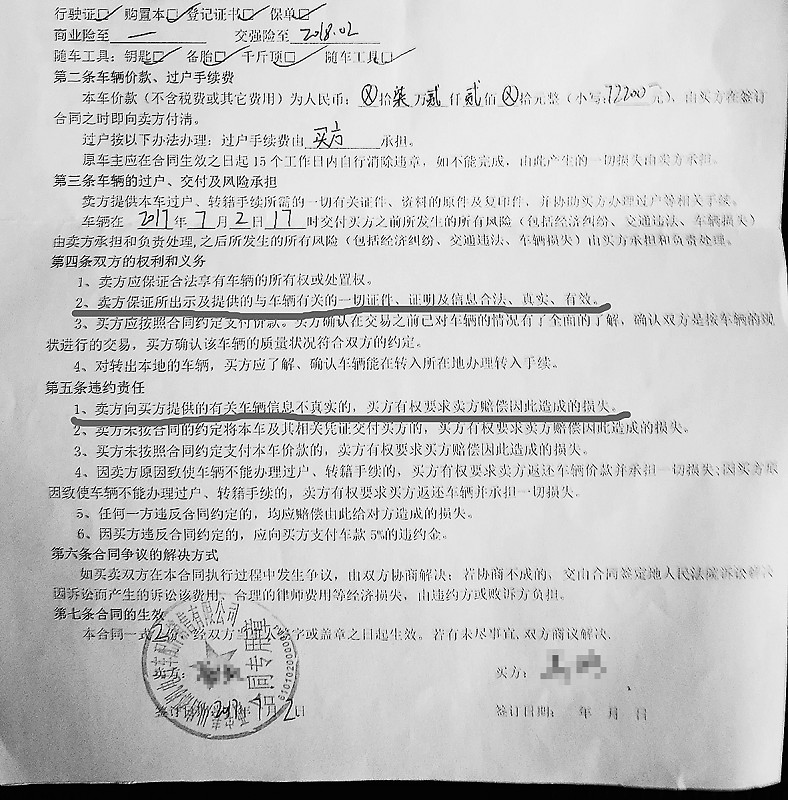 行驶证☑ 购置本☑ 登记证书☑ 保单☑
商业险至 一 交强险至 2018.02
随车工具：钥匙☑ 备胎☑ 千斤顶☑ 随车工具☑
第二条车辆价款、过户手续费
本车价款（不含税费或其它费用）为人民币：ⓧ拾柒万贰仟贰佰ⓧ拾元整（小写:72200元），由买方在签订
合同之时即向卖方付清。
过户按以下办法办理：过户手续费由 买方 承担。
原车主应在合同生效之日起15个工作日内自行消除违章，如不能完成，由此产生的一切损失由卖方承担。
第三条车辆的过户、交付及风险承担
卖方提供本车过户、转籍手续所需的一切有关证件、资料的原件及复印件，并协助买方办理过户等相关手续。
车辆在 2017年7月2日17时交付买方之前所发生的所有风险（包括经济纠纷、交通违法、车辆损失）
由卖方承担和负责处理,之后所发生的所有风险（包括经济纠纷、交通违法、车辆损失）由买方承担和负责处理。
第四条双方的权利和义务
1、卖方应保证合法享有车辆的所有权或处置权。
2、卖方保证所出示及提供的与车辆有关的一切证件、证明及信息合法、真实、有效。
3、买方应按照合同约定支付价款。买方确认在交易之前已对车辆的情况有了全面的了解，确认双方是按车辆的现
状进行的交易，买方确认该车辆的质量状况符合双方的约定。
4、对转出本地的车辆，买方应了解、确认车辆能在转入所在地办理转入手续。
第五条违约责任
1、卖方向买方提供的有关车辆信息不真实的，买方有权要求卖方赔偿因此造成的损失。
2、卖方未按合同的约定将本车及其相关凭证交付买方的，买方有权要求卖方赔偿因此造成的损失。
3、买方未按照合同约定支付本车价款的，卖方有权要求买方赔偿因此造成的损失。
4、因卖方原因致使车辆不能办理过户、转籍手续的，买方有权要求卖方返还车辆价款并承担一切损失;因买方原
因致使车辆不能办理过户、转籍手续的，卖方有权要求买方返还车辆并承担一切损失。
5、任何一方违反合同约定的，均应赔偿由此给对方造成的损失。
6、因买方违反合同约定的，应向买方支付车款5%的违约金。
第六条合同争议的解决方式
如买卖双方在本合同执行过程中发生争议，由双方协商解决；若协商不成的，交由合同签定地人民法院诉讼解决
因诉讼而产生的诉讼该费用、合理的律师费用等经济损失，由违约方或败诉方负担。
第七条合同的生效
本合同一式2份，经双方当事人签字或盖章之日起生效。若有未尽事宜,双方商议解决。
卖方： 买方：
签订日期：2017年7月2日 签订日期： 年 月 日
合同专用章